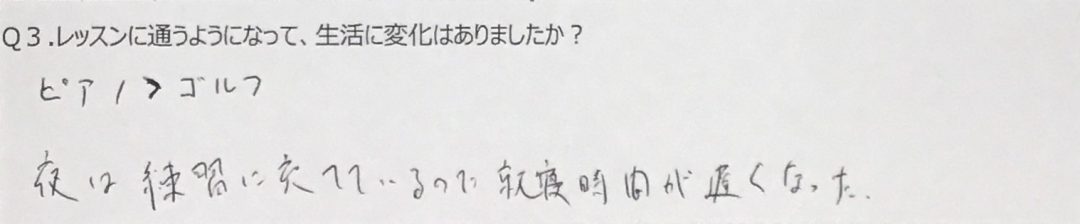 Q3.レッスンに通うようになって、生活に変化はありましたか？
ピアノ>ゴルフ
夜は練習に充てているので就寝時間が遅くなった.